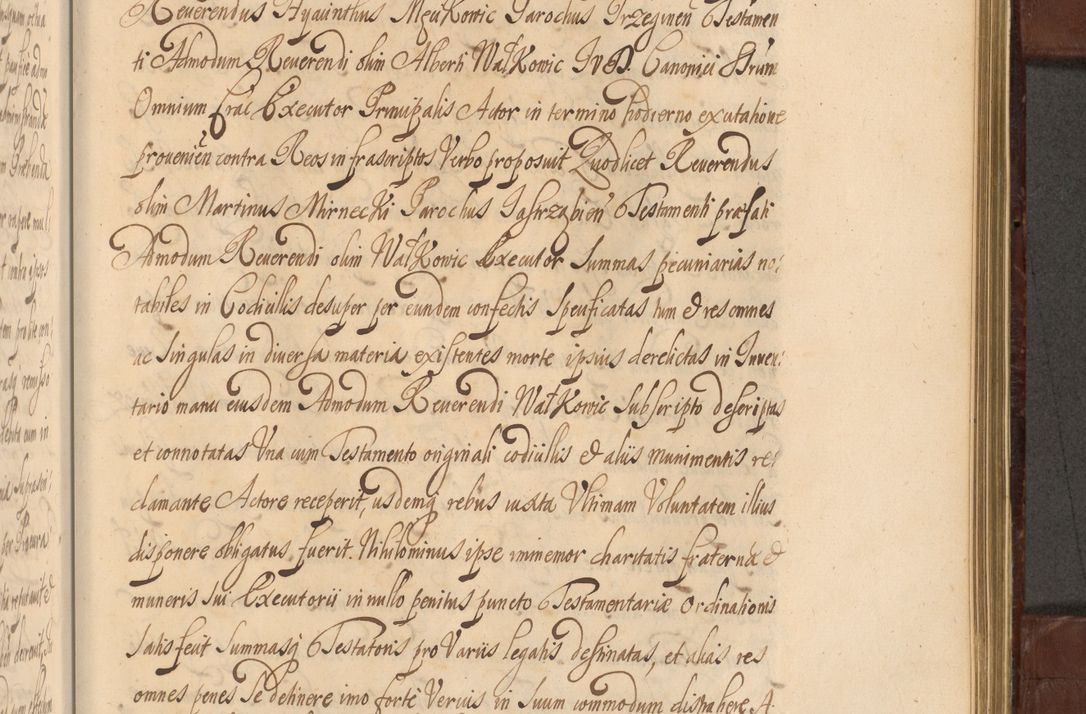 Reverendus Hyacinthus Męcikowic Parochus Przeginen Testamen
ti Admodum Reverendi olim Alberti Wałkowic IVD. Canonici SSrum
Omnium Crac Executor Principalis Actor in termino hodierno ex citatione
provenien contra Reos infrascriptos Verbo proposuit Quodlicet Reverendus
olim Martinus Mirnecki Parochus Jastrząbien Testamenti præfati
Admodum Reverendi olim Wałkowic Executor Summas pecuniarias no
tabiles in Codicillis desuper per eundem confectis Specificatas tum & res omnes
ac Singulas in diversa materia existentes morte ipsius derelictas in Inven
tario manu eiusdem Admodum Reverendi Wałkowic Subscripto descriptas
et connotatas Una cum Testamento originali codicillis & aliis munimentis re
clamante Actore receperit, iisdemq rebus iuxta Ultimam Voluntatem illius
disponere obligatus fuerit. Nihilominus ipse immemor charitatis fraternæ &
muneris sui Executorii in nullo penitus puncto Testamentariæ Ordinationis
Satisfecit Summasq Testatoris pro Variis legatis destinatas, et alias res
omnes penes Se detinere imo forte Verius in Suum commodum distrahere A